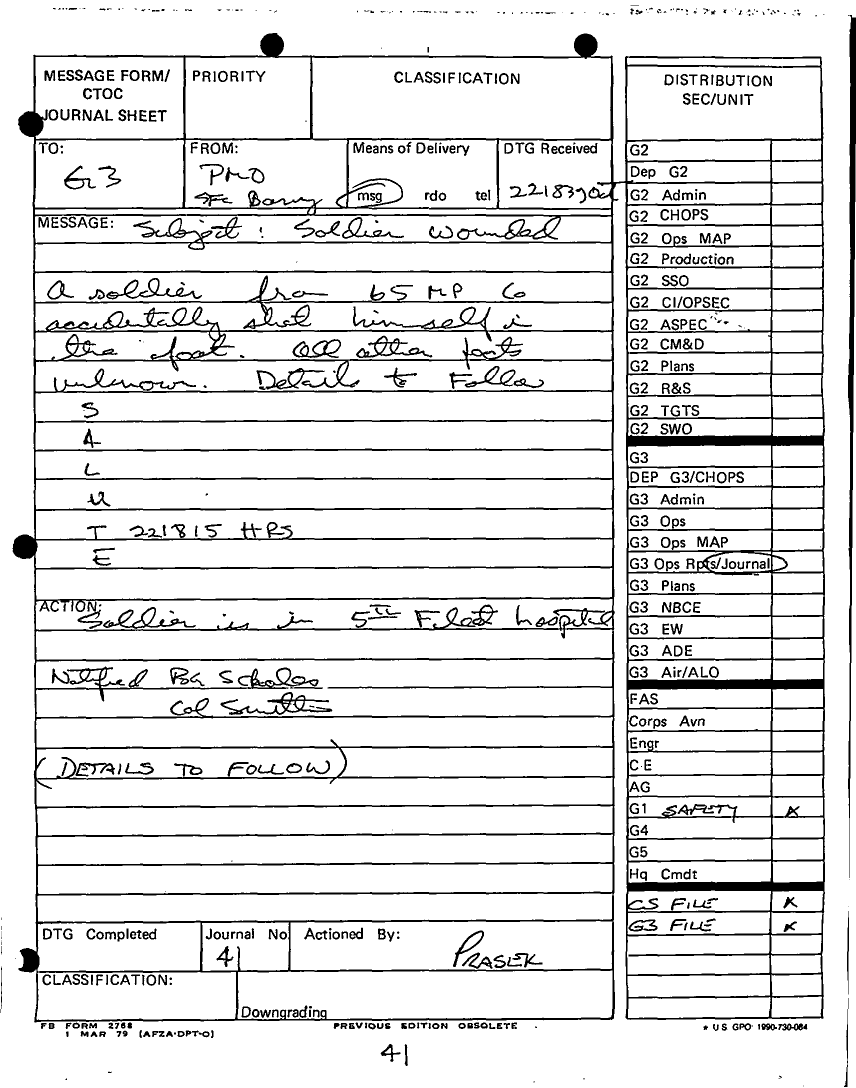 MESSAGE FORM/
CTOC
JOURNAL SHEET
PRIORITY
CLASSIFICATION
TO:
G3
FROM:
PMO
SFC Barry
Means of Delivery
msg rdo tel
DTG Received
221839Oct
MESSAGE: Subject: Soldier wounded
A soldier from 65 MP Co
accidentally shot himself i
the foot. All other facts
unknown. Details to Follow
S
A
L
U
T 221815 HRS
E
ACTION:
Soldier is in 5th Filed hospital
Notified BG Scholes
Col Smith
(DETAILS TO FOLLOW)
DTG Completed
Journal No
41
Actioned By:
PRASEK
CLASSIFICATION:
Downgrading
FB FORM 2768
1 MAR 79 (AFZA-DPT-O)
PREVIOUS EDITION OBSOLETE
41
DISTRIBUTION
SEC/UNIT
G2
Dep G2
G2 Admin
G2 CHOPS
G2 Ops MAP
G2 Production
G2 SSO
G2 CI/OPSEC
G2 ASPEC
G2 CM&D
G2 Plans
G2 R&S
G2 TGTS
G2 SWO
G3
DEP G3/CHOPS
G3 Admin
G3 Ops
G3 Ops MAP
G3 Ops Rpts/Journal
G3 Plans
G3 NBCE
G3 EW
G3 ADE
G3 Air/ALO
FAS
Corps Avn
Engr
C-E
AG
G1 SAFETY X
G4
G5
Hq Cmdt
CS FILE X
G3 FILE X
* U S GPO: 1990-730-084